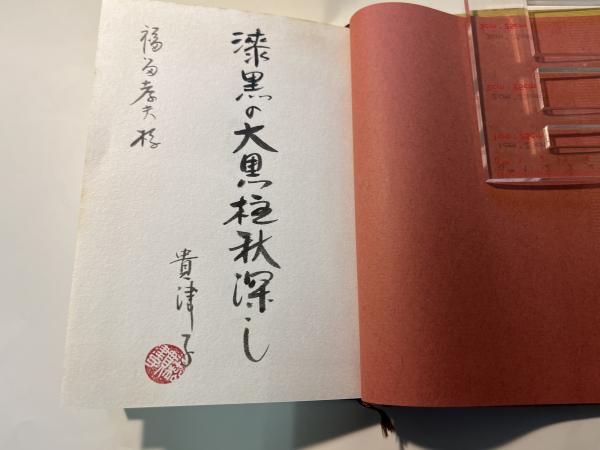 漆黒の大黒柱秋深し
貴津子
福島孝夫様